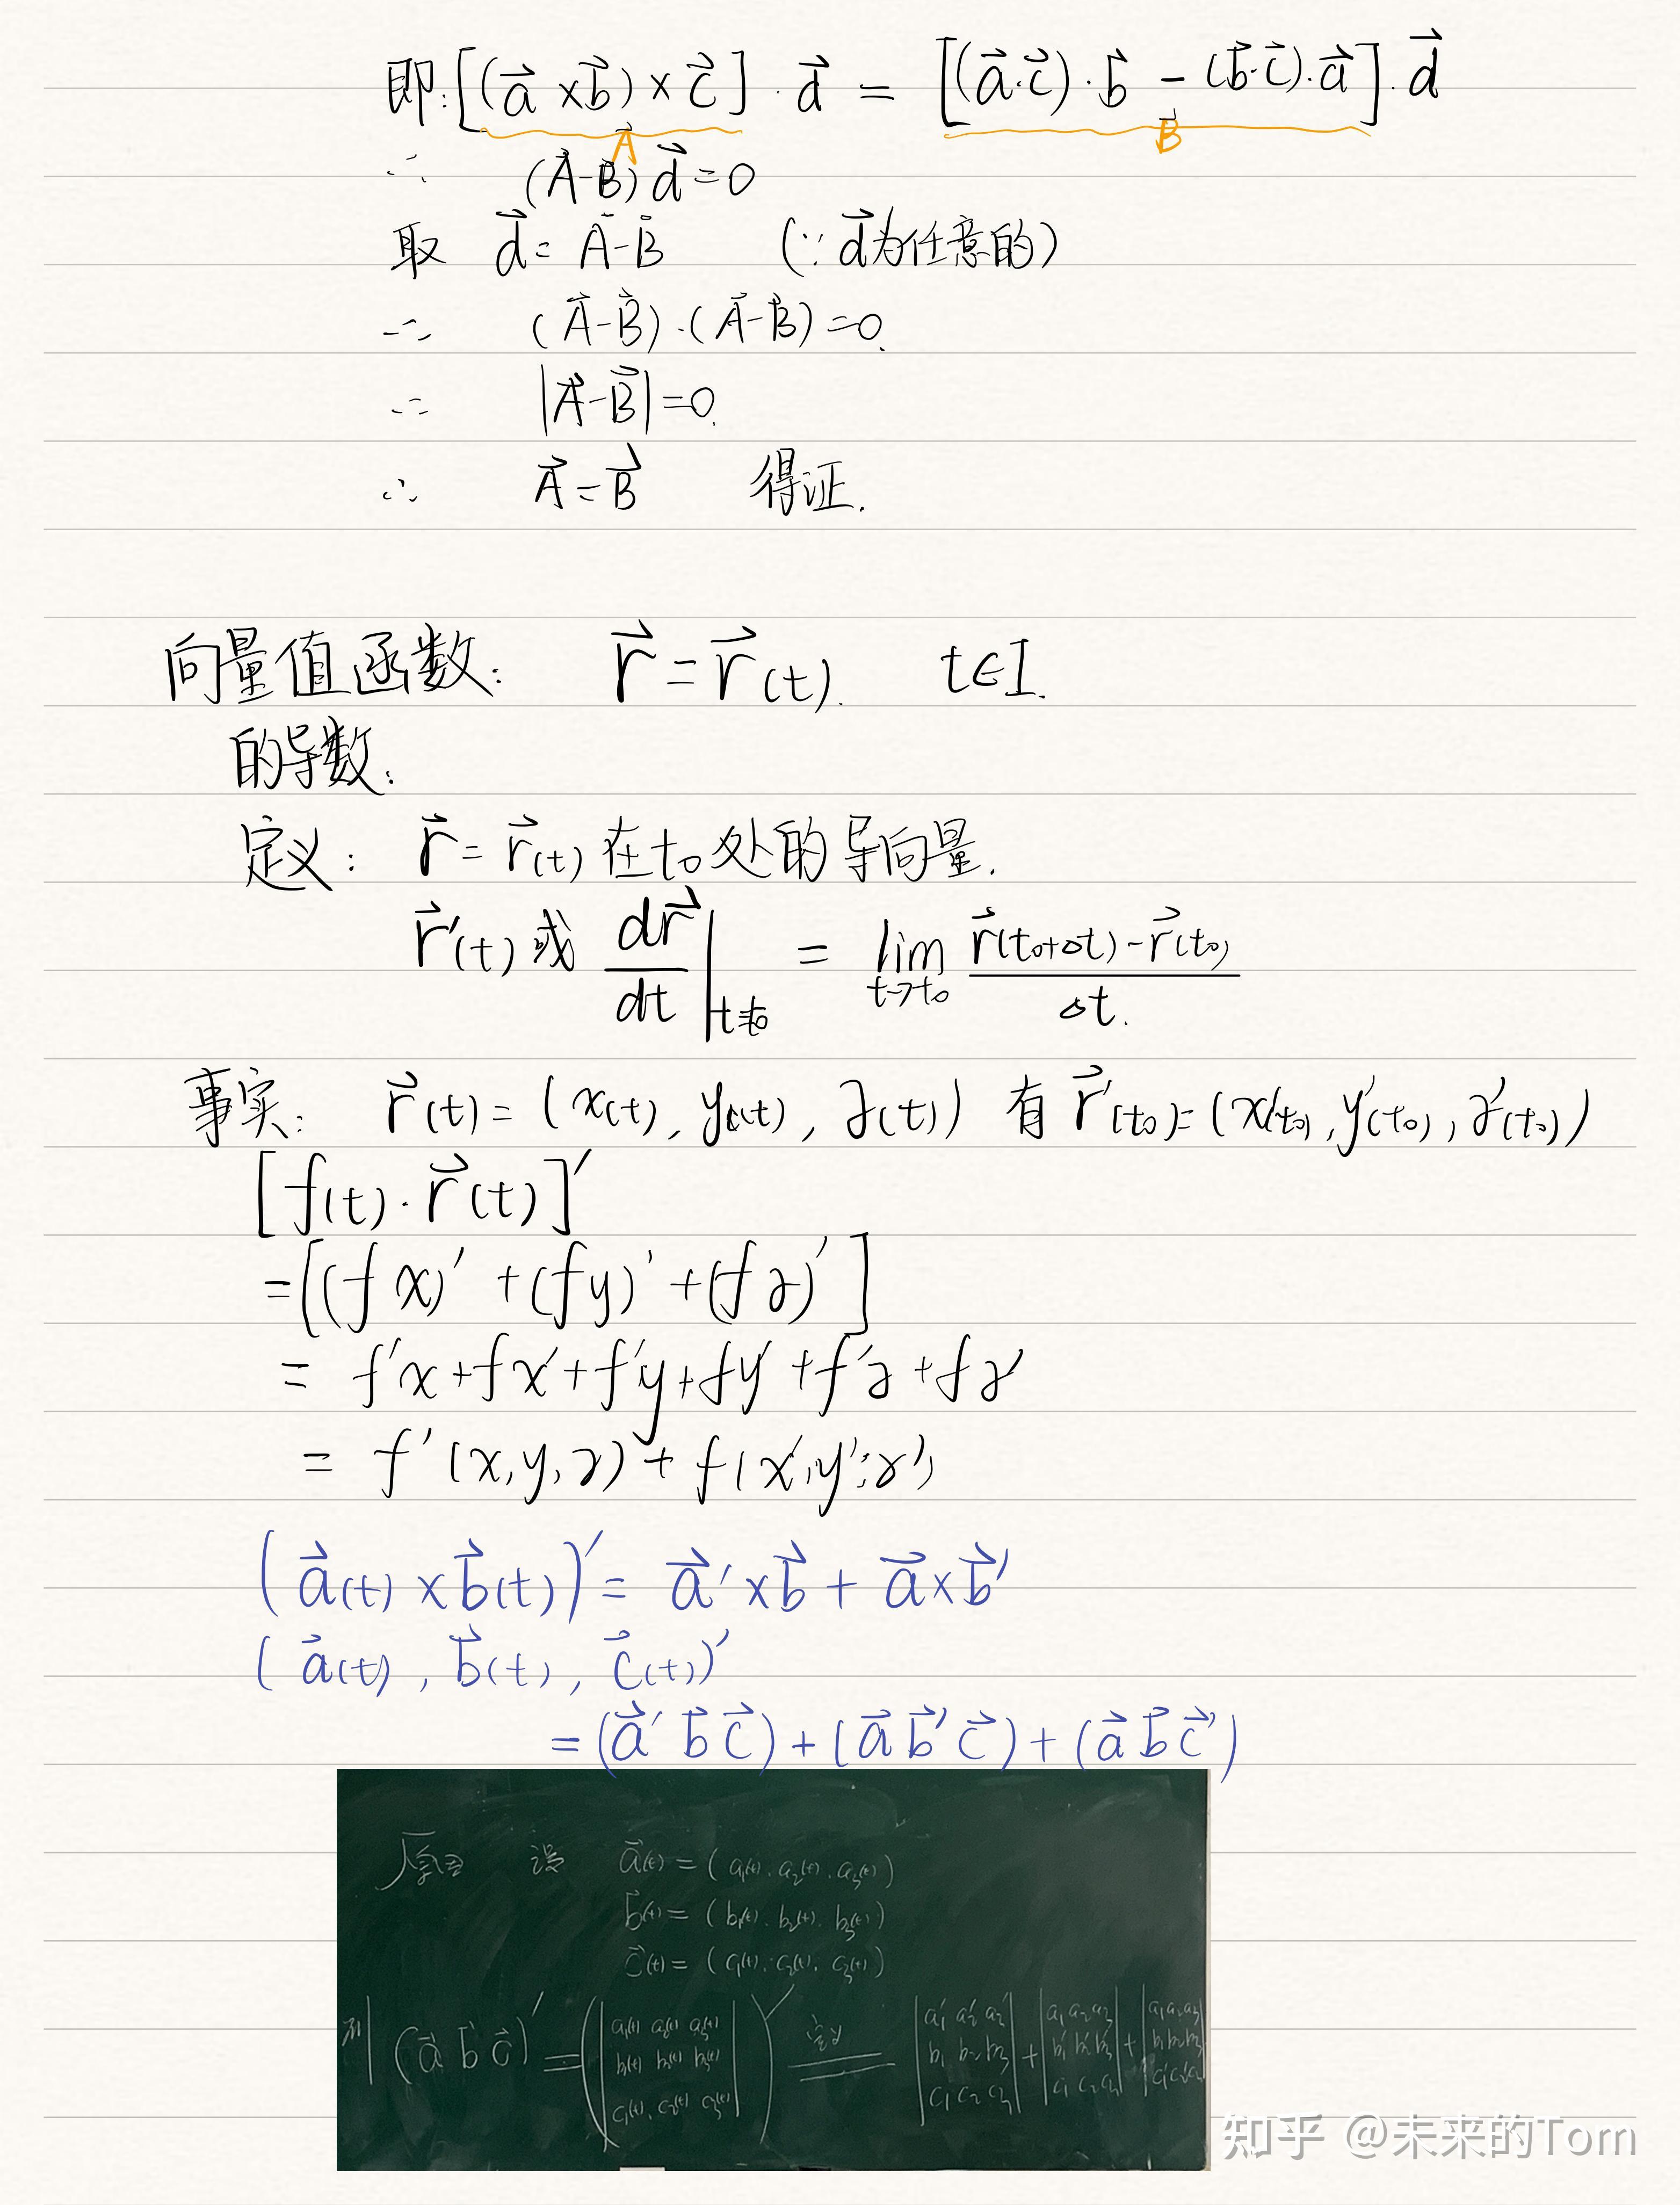 即:[(a⃗×b⃗)×c⃗]·d⃗ = [(a⃗·c⃗)·b⃗ - (b⃗·c⃗)·a⃗]·d⃗
A⃗ B⃗
∴ (A⃗-B⃗)d⃗=0
取 d⃗=A⃗-B⃗ (∵d⃗为任意的)
∴ (A⃗-B⃗)·(A⃗-B⃗)=0.
∴ |A⃗-B⃗|=0.
∴ A⃗=B⃗ 得证.
向量值函数: r⃗=r⃗(t). t∈I.
的导数:
定义: r⃗=r⃗(t)在t₀处的导向量.
r⃗'(t)或 dr⃗/dt|t=t₀ = lim t→t₀ (r⃗(t₀+Δt)-r⃗(t₀))/Δt.
事实: r⃗(t)=(x(t), y(t), z(t)) 有 r⃗'(t₀)=(x'(t₀), y'(t₀), z'(t₀))
[f(t)·r⃗(t)]'
=[(fx)'+(fy)'+(fz)']
= f'x+fx'+f'y+fy'+f'z+fz'
= f'(x,y,z)+f(x',y',z')
(a⃗(t)×b⃗(t))'= a⃗'×b⃗+a⃗×b⃗'
(a⃗(t), b⃗(t), c⃗(t))'
=(a⃗' b⃗ c⃗)+(a⃗ b⃗' c⃗)+(a⃗ b⃗ c⃗')
设 a⃗(t)=(a₁(t), a₂(t), a₃(t))
b⃗(t)=(b₁(t), b₂(t), b₃(t))
c⃗(t)=(c₁(t), c₂(t), c₃(t))
则 (a⃗ b⃗ c⃗)' = (|a₁(t) a₂(t) a₃(t) b₁(t) b₂(t) b₃(t) c₁(t) c₂(t) c₃(t)|)' = |a₁' a₂' a₃' b₁ b₂ b₃ c₁ c₂ c₃| + |a₁ a₂ a₃ b₁' b₂' b₃' c₁ c₂ c₃| + |a₁ a₂ a₃ b₁ b₂ b₃ c₁' c₂' c₃'|
知乎 @未来的Tom